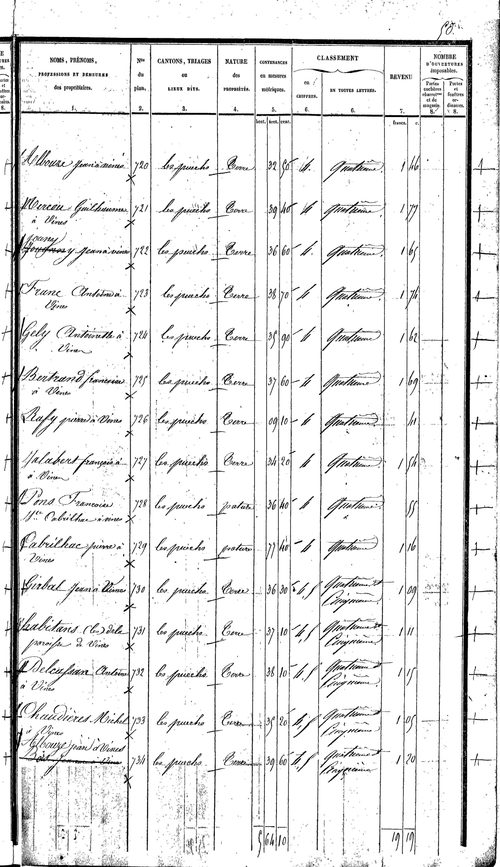 58.
NOMS, PRÉNOMS,
PROFESSIONS ET DEMEURES
des propriétaires.
1.
Nos
du
plan.
2.
CANTONS, TRIAGES
ou
LIEUX DITS.
3.
NATURE
des
PROPRIÉTÉS.
4.
CONTENANCES
en mesures
métriques.
5.
CLASSEMENT
en
CHIFFRES.
6.
EN TOUTES LETTRES.
6.
REVENU
7.
NOMBRE
D'OUVERTURES
imposables.
Portes
cochères
charretières
et de
magasin
8.
Portes
et
fenêtres
ordinaires.
8.
hect. ares cent.
francs. c.
Albouze jean à vines 720 les puechs Terre 32 50 4. quatrième 1 46
Moreau Guilhaume 721 les puechs Terre 39 40 4 quatrième 1 77
à Vines
722 les puechs Terre 36 60 4. quatrième 1 65
Franc Antoine à 723 les puechs Terre 38 70 4 quatrième 1 74
Vines
Gely Antoinette à 724 les puechs Terre 35 90 4 quatrième 1 62
Vines
Bertrand francoise 725 les puechs Terre 37 60 4 quatrième 1 69
à Vines
Rafy pierre à Vines 726 les puechs Terre 09 10 4 quatrième 41
Malabert françois à 727 les puechs Terre 34 20 4 quatrième 1 54
à Vines
Pons Francoise 728 les puechs pature 36 40 4 quatrième 55
Cabrilhac à vines
Cabrilhac pierre à 729 les puechs pature 77 40 4 quatrième 1 16
Vines
Girbal jean à Vines 730 les puechs Terre 36 30 4,5 Quatrième et 1 09
Cinquième
habitans (les) de la 731 les puechs Terre 37 10 4,5 Quatrième et 1 11
paroisse de Vines Cinquième
Delcussan Antoine 732 les puechs Terre 38 10 4,5 Quatrième et 1 15
à Vines Cinquième
Chaudières Michel 733 les puechs Terre 35 20 4,5 Quatrième et 1 05
à Vines Cinquième
Albouze jean à Vines 734 les puechs Terre 39 60 4,5 Quatrième et 1 20
Cinquième
5 64 10
19 19